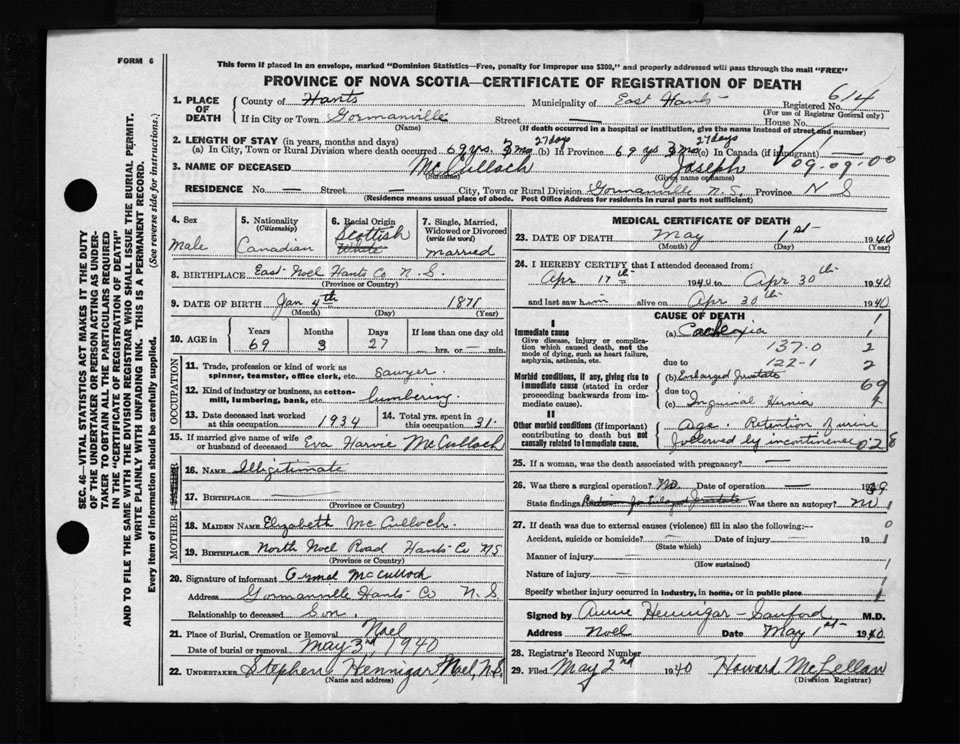 FORM 6
This form if placed in an envelope, marked "Dominion Statistics—Free, penalty for improper use $300," and properly addressed will pass through the mail "FREE"
PROVINCE OF NOVA SCOTIA—CERTIFICATE OF REGISTRATION OF DEATH
614
1. PLACE OF DEATH
County of Hants
Municipality of East Hants
Registered No.
(For use of Registrar General only)
If in City or Town Gormanville
Street
House No.
(Name)
(If death occurred in a hospital or institution, give the name instead of street and number)
2. LENGTH OF STAY (in years, months and days)
(a) In City, Town or Rural Division where death occurred 69 yrs. 3 mo 27 days (b) In Province 69 yrs 3 mo 27 days (c) In Canada (if immigrant)
3. NAME OF DECEASED McCulloch Joseph
(Surname) (Given name or names)
109-09-00
RESIDENCE No. — Street — City, Town or Rural Division Gormanville N.S. Province N S
(Residence means usual place of abode. Post Office Address for residents in rural parts not sufficient)
4. Sex
Male
5. Nationality
(Citizenship)
Canadian
6. Racial Origin
Scottish
White
7. Single, Married, Widowed or Divorced
(write the word)
Married
8. BIRTHPLACE East Noel Hants Co N.S.
(Province or Country)
9. DATE OF BIRTH Jan 4th 1871
(Month) (Day) (Year)
10. AGE in
Years Months Days If less than one day old
69 3 27 — hrs. or — min.
OCCUPATION
11. Trade, profession or kind of work as spinner, teamster, office clerk, etc. Sawyer.
12. Kind of industry or business, as cotton-mill, lumbering, bank, etc. lumbering.
13. Date deceased last worked at this occupation 1934
14. Total yrs. spent in this occupation 31.
15. If married give name of wife or husband of deceased Eva Harvie McCulloch
16. NAME Illegitimate
17. BIRTHPLACE
(Province or Country)
MOTHER
18. MAIDEN NAME Elizabeth McCulloch.
19. BIRTHPLACE North Noel Road Hants Co NS
(Province or Country)
20. Signature of informant Ormel McCulloch
Address Gormanville Hants Co N.S
Relationship to deceased Son.
21. Place of Burial, Cremation or Removal Noel
Date of burial or removal May 3rd, 1940
22. UNDERTAKER Stephen Hennigar, Noel, N.S.
(Name and address)
MEDICAL CERTIFICATE OF DEATH
23. DATE OF DEATH May 1st 1940
(Month) (Day) (Year)
24. I HEREBY CERTIFY that I attended deceased from:
Apr 17th 1940 to Apr 30th 1940
and last saw him alive on Apr 30th 1940
CAUSE OF DEATH
I
Immediate cause
Give disease, injury or complication which caused death, not the mode of dying, such as heart failure, asphyxia, asthenia, etc.
(a) Cachexia 1
137-0 2
due to 122-1 2
Morbid conditions, if any, giving rise to immediate cause (stated in order proceeding backwards from immediate cause).
(b) Enlarged Prostate
69
due to
(c) Inguinal Hernia
II
Other morbid conditions (if important) contributing to death but not causally related to immediate cause.
Age. Retention of urine
followed by incontinence
028
25. If a woman, was the death associated with pregnancy? —
26. Was there a surgical operation? No. Date of operation — 1939
State findings
Was there an autopsy? No
27. If death was due to external causes (violence) fill in also the following:—
Accident, suicide or homicide? — Date of injury — 19
(State which)
Manner of injury
(How sustained)
Nature of injury
Specify whether injury occurred in industry, in home, or in public place
Signed by Hennigar-Sanford M.D.
Address Noel Date May 1st 1940
28. Registrar's Record Number
29. Filed May 2nd 1940 Howard McLellan
(Division Registrar)
SEC. 46—VITAL STATISTICS ACT MAKES IT THE DUTY
OF THE UNDERTAKER OR PERSON ACTING AS UNDER-
TAKER TO OBTAIN ALL THE PARTICULARS REQUIRED
IN THE "CERTIFICATE OF REGISTRATION OF DEATH"
AND TO FILE THE SAME WITH THE DIVISION REGISTRAR WHO SHALL ISSUE THE BURIAL PERMIT.
WRITE PLAINLY WITH UNFADING INK. THIS IS A PERMANENT RECORD.
Every item of Information should be carefully supplied. (See reverse side for instructions.)